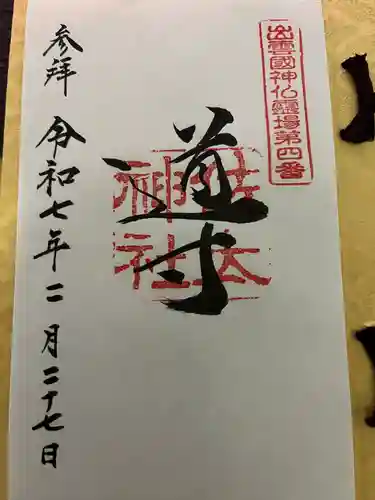 出雲國神仏靈場第四番
導
佐太
神社
参拝
令和七年二月二十七日